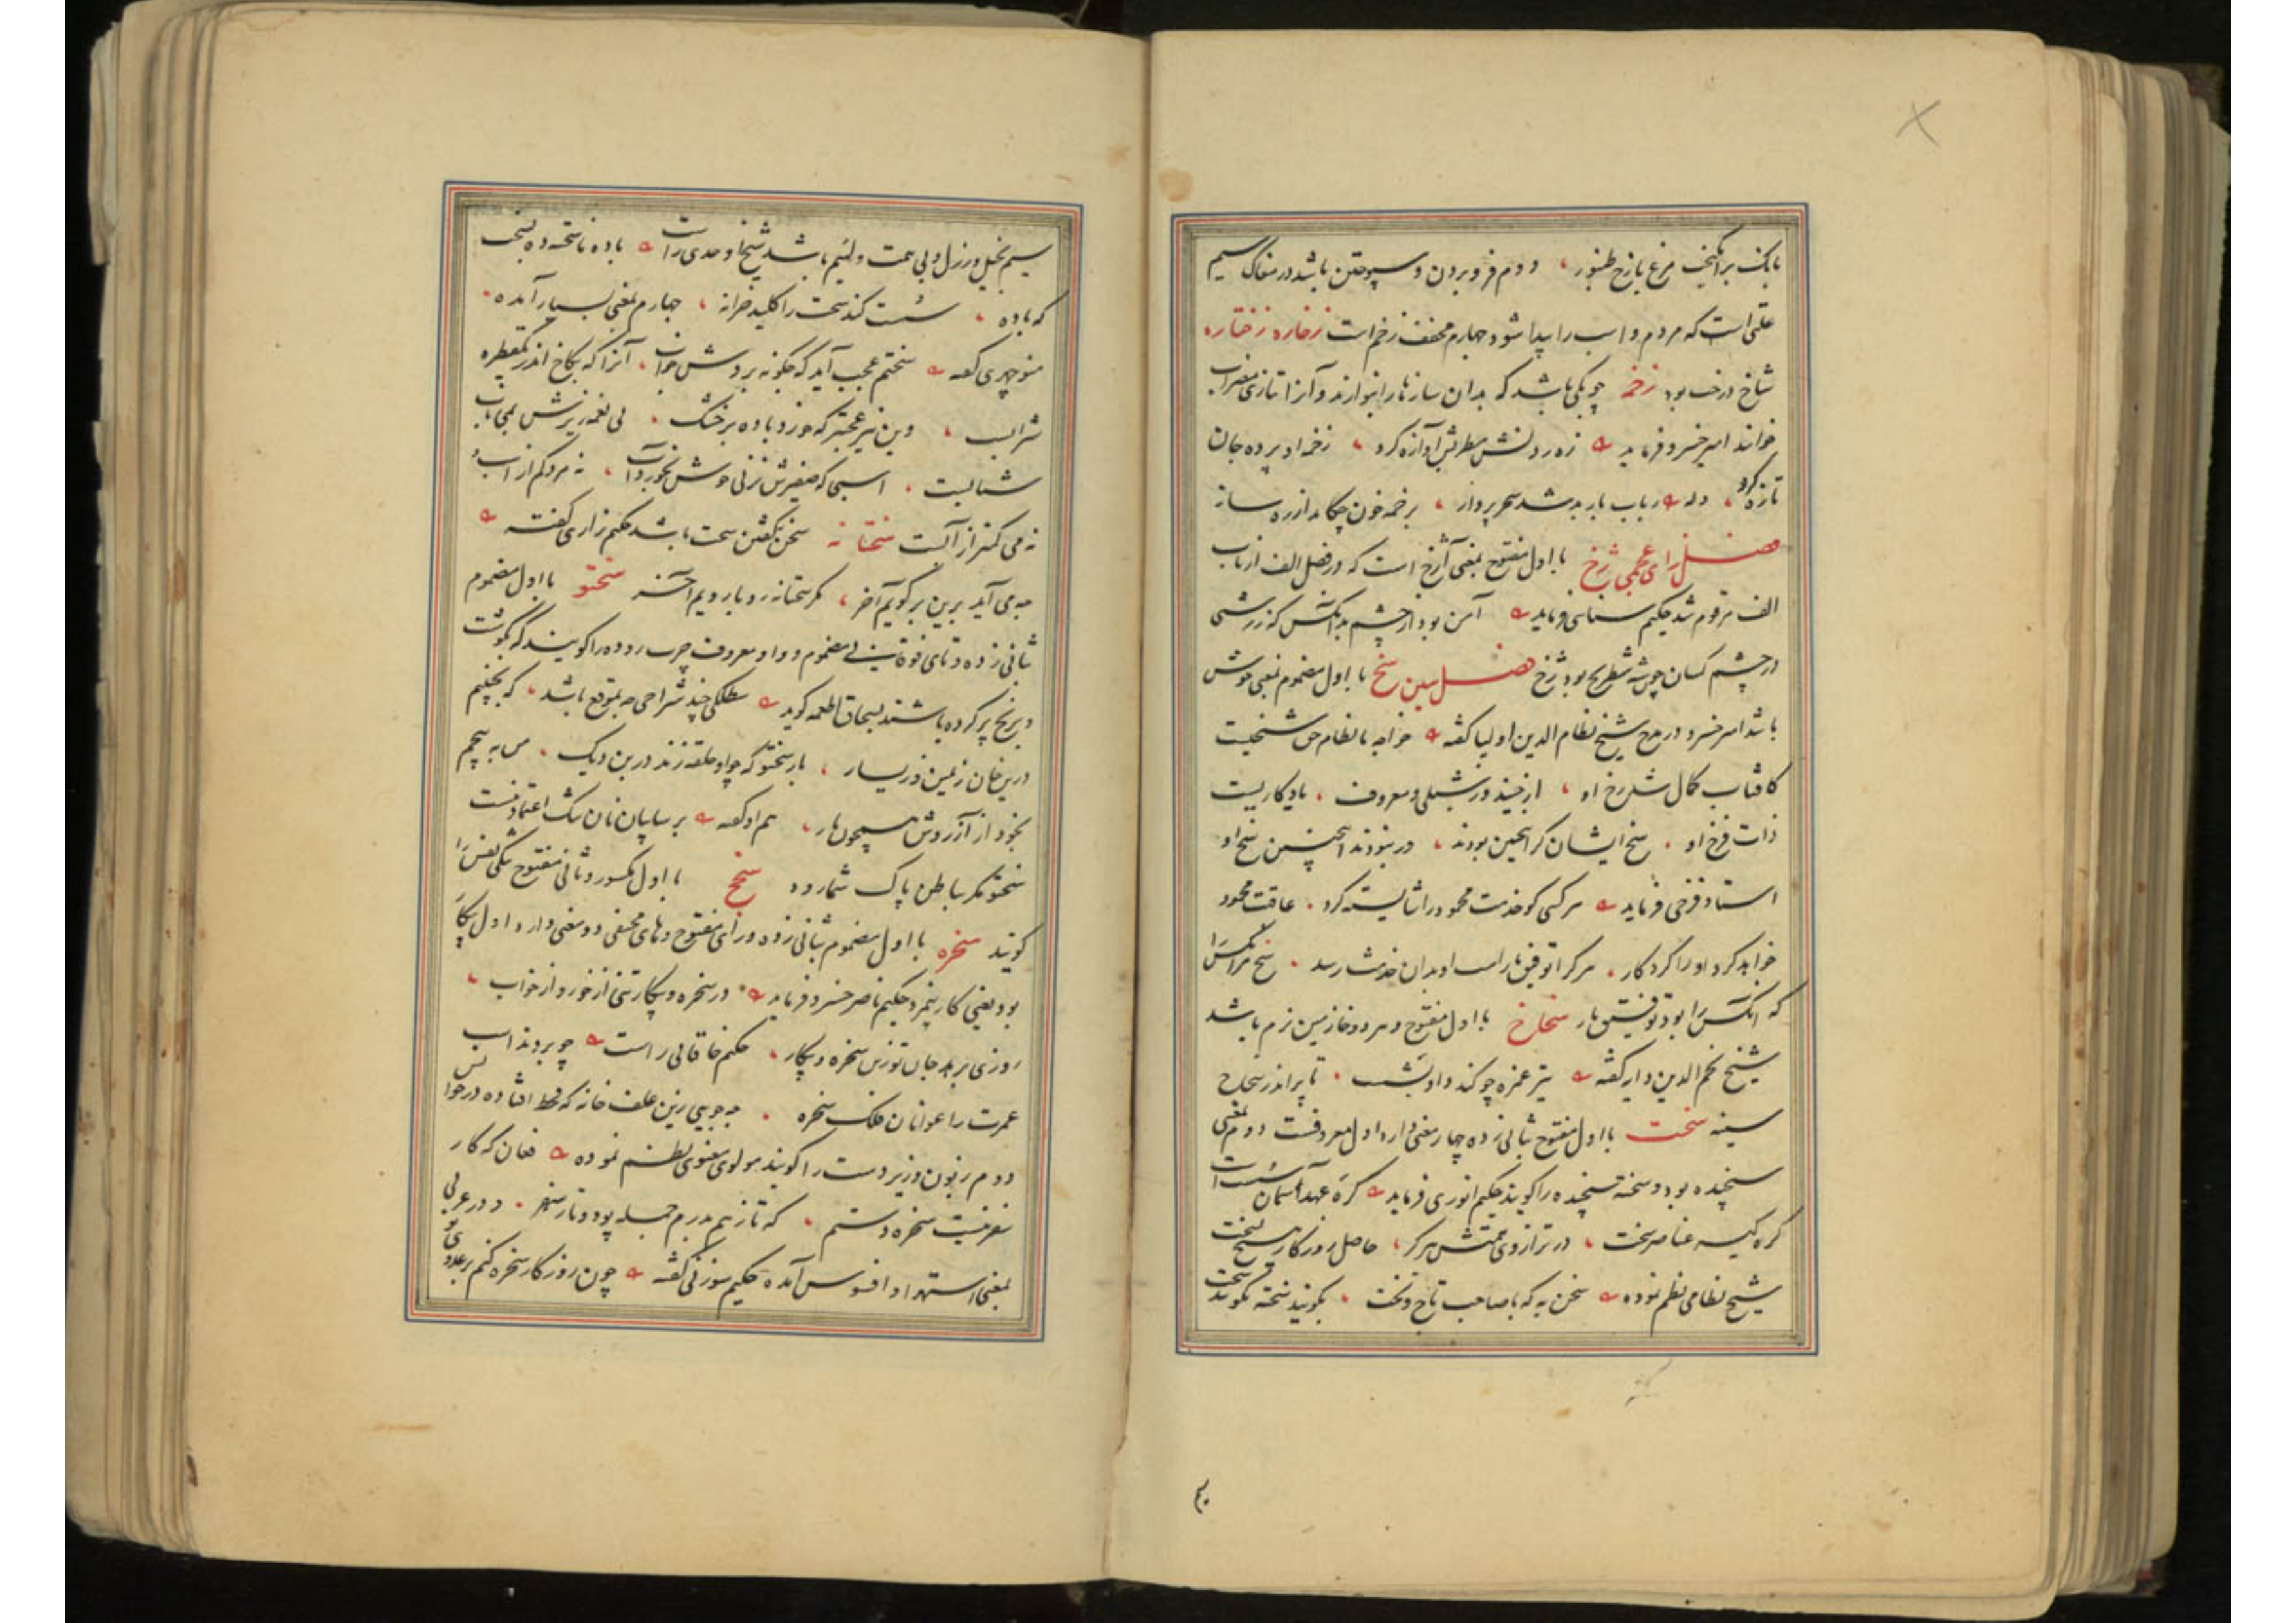 بانک برانکیخت مرغ بازخ طنبور ، دوم فرو بردن و سپوختن باشد در مغاک سیم
علتی است که مردم و اسب را پیدا شود چهارم مخفف زخم است زخاره زختاره
شاخ درخت بود زخمه چوبکی باشد که بدان سازها را بنوازند و آنرا بتازی مضراب
خوانند امیر خسرو فرماید زه رد آوازه کرد ، زخمه او پرده جان
تازه کرد ، وله رباب باربد شد سحر پرداز ، برخمه خون چکاند از ره ساز
فصل زای عجمی ژخ با اول مفتوح بمعنی آژخ است که در فصل الف از باب
الف مرقوم شد حکیم سنائی فرماید آمن بود از چشم بد آنکس که ز زشتی
در چشم کسان چون شه شطرنج بود ژخ فصل سین سخ با اول مضموم بمعنی خوش
باشد امیر خسرو در مدح شیخ نظام الدین اولیا کفته خواجه ما نظام حق شیخیست
کافتاب کمال شد رخ او ، از جنید و ز شبلی و معروف ، یادکاریست
ذات فرخ او . سخ ایشان کر اینچنین بودند ، ور نبودند اینچنین سخ او
استاد فرخی فرماید هر کسی کو خدمت محمود را شایسته کرد . عاقبت محمود
خواهد کرد او را کردکار . هر کرا توفیق یار است او بدان خدمت رسد . سخ مر آنکس را
که آنکس را بود توفیق یار سخاخ با اول مفتوح و هر دو خا زمین نرم باشد
شیخ نجم الدین دایه کفته تیر غمزه چو کند داو بشست . تا پر اندر سخاخ
سینه سخت با اول مفتوح بثانی زده چهار معنی دارد اول معروفست دوم بمعنی
سنجیده بود و سخته سنجیده را کویند حکیم انوری فرماید کره عهد آسمان سست است
کره کیسه عناصر سخت ، در ترازوی همتش هرکز ، حاصل روزکار هیچ نسخت
شیخ نظامی نظم نموده سخن به که با صاحب تاج و تخت . بکویند سخته نکویند سخت
سیم بخیل و رزل و بی همت و لئیم باشد شیخ اوحدی راست باده ناسخته ده نسخت
که باده ، سست کند سخت را کلید خزانه ، چهارم بمعنی بسیار آمده
منوچهری کفته سختم عجب آید که چکونه بردش خواب ، آنرا که بکاخ اندر یکقطره
شرابست ، وین نیز عجبتر که خورد باده بر خشک . بی نغمه زیرش بمی ناب
شتابست . اسبی که صفیرش نزنی خوش نخورد آب ، نه مرد کم از اسب و
نه می کمتر از آبست سختانه سخن نکفتن سخت باشد حکیم نزاری کفته
چه می آید برین برکویم آخر ، مکر سختانه رو با رویم آخر سختو با اول مضموم
بثانی زده و تای فوقانی مضموم و واو معروف چرب روده را کویند که بکوشت
و برنج پر کرده باشند بسحاق اطعمه کوید کلکی چند شراحی چه بموقع باشد ، که بچینیم
درین خان ز یمین و ز یسار ، باز سختو که چو او حلقه زند در بن دیک . من به پیچم
بخود از آرزویش همچون مار ، هم او کفته بر بیابان نان تنک اعتماد نیست
سختو مکر بباطن پاک شمارد و سخج با اول مکسور و ثانی مفتوح تنکی نفس را
کویند سخره با اول مضموم بثانی زده و رای مفتوح و های مختفی دو معنی دارد اول بیکار
بود یعنی کار بیمزد حکیم ناصر خسرو فرماید در سخره و بیکار تنی از خور و از خواب ،
روزی برهد جان تو زین سخره و بیکار ، حکیم خاقانی راست چو بردند اسب
عمرت را عوانان فلک سخره . چه جویی زین علف خانه که قحط افتاده در خوانش
دوم زبون و زیردست را کویند مولوی معنوی نظم نموده فغان که کار
بمعنی استهزا و افسوس آمده حکیم سوزنی کفته چون روزکار سخره کنم بر علاء